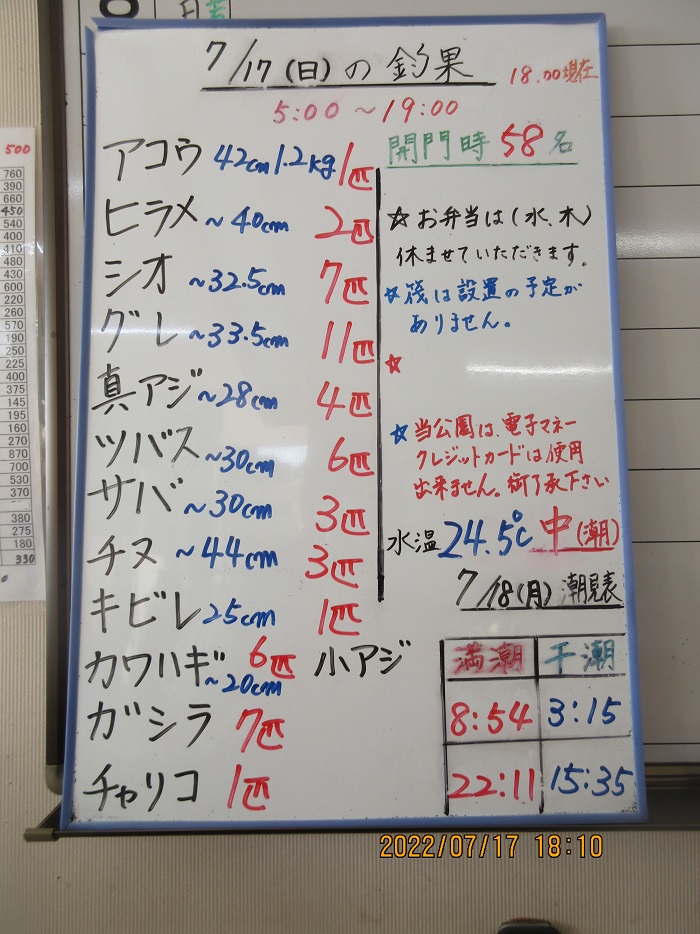 7/17(日)の釣果
18.00現在
5:00~19:00
アコウ 42cm 1.2kg 1匹
ヒラメ ~40cm 2匹
シオ ~32.5cm 7匹
グレ ~33.5cm 11匹
真アジ ~28cm 4匹
ツバス ~30cm 6匹
サバ ~30cm 3匹
チヌ ~44cm 3匹
キビレ 25cm 1匹
カワハギ ~20cm 6匹 小アジ
ガシラ 7匹
チャリコ 1匹
開門時 58名
☆お弁当は(水、木)
休ませていただきます。
☆筏は設置の予定が
ありません。
☆
☆当公園は、電子マネー
クレジットカードは使用
出来ません。御了承下さい
水温 24.5℃ 中(潮)
7/18(月)潮見表
満潮 干潮
8:54 3:15
22:11 15:35
500
760
390
660
450
540
400
410
480
430
600
220
260
570
190
250
225
400
375
145
195
160
270
870
700
530
370
380
275
180
330
2022/07/17 18:10